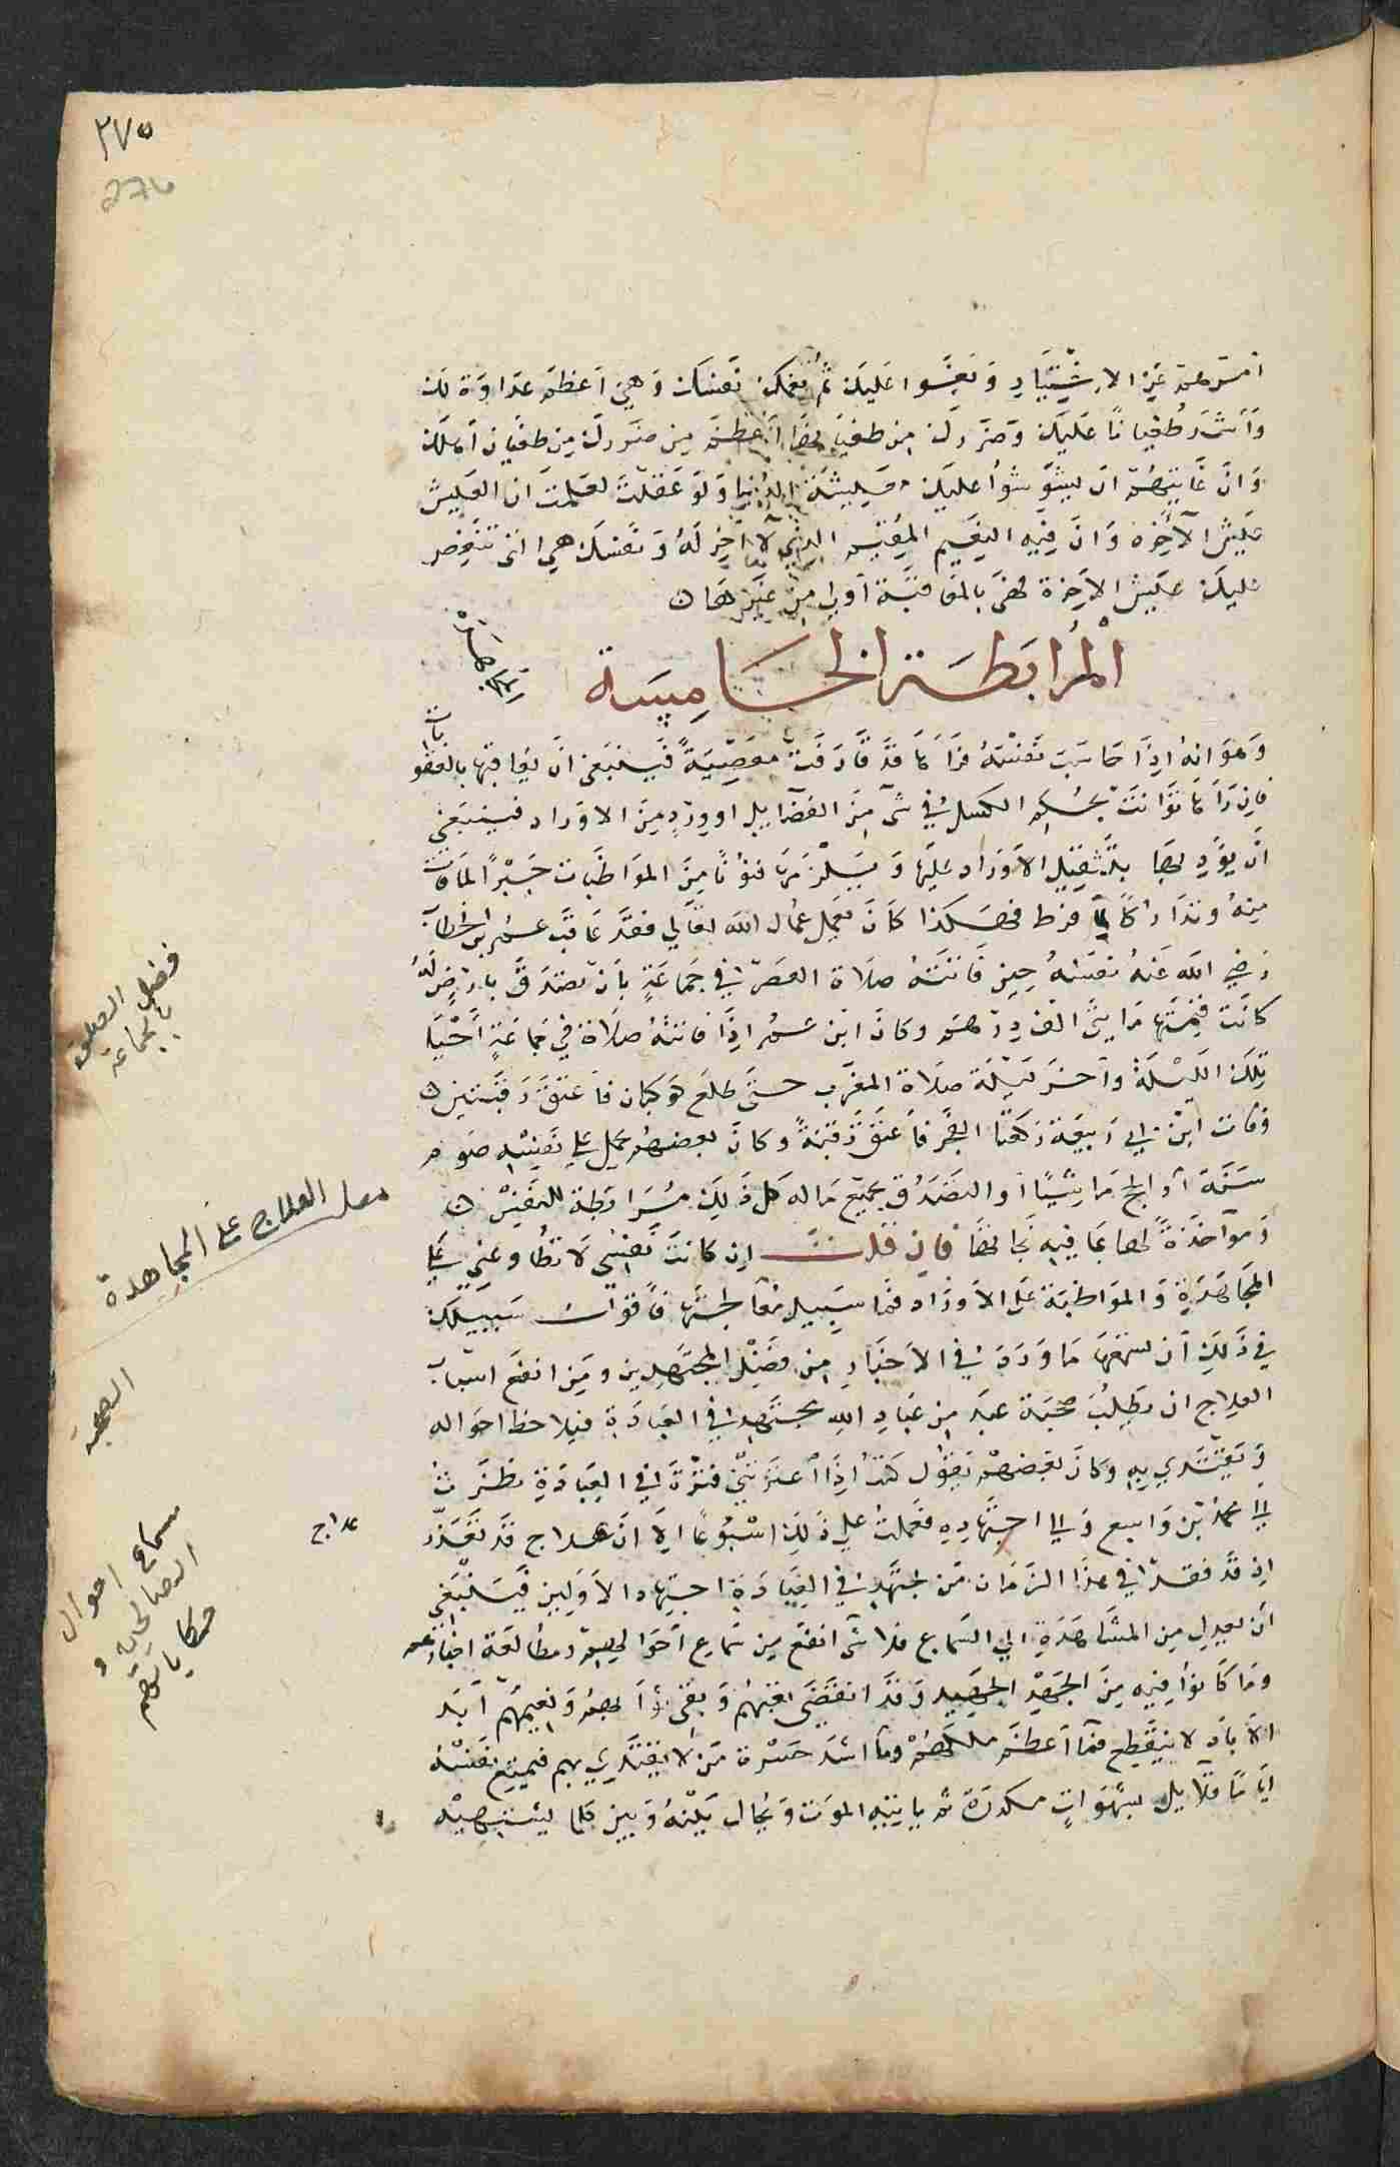 ٢٧٥
276
امرهم عن الاختيار وبغوا عليك ثم تهمل نفسك وهي اعظم عداوة لك
وأشد طغيانًا عليك وضررك من طغيانها اعظم من ضررك من طغيان أهلك
وان غايتهم ان يشوشوا عليك معيشة الدنيا ولو عقلت لعلمت ان العيش
عيش الآخرة وان فيه النعيم المقيم الذي لا آخر له ونفسك هي التي تنغص
عليك عيش الآخرة فهي بالمعاقبة أولى من غيرها
المرابطة الخامسة
المجاهدة
وهو انه إذا حاسب نفسه فرآها قد قارفت معصية فينبغي ان يعاقبها بالعقوبات
فان رآها توانت بحكم الكسل في شئ من الفضايل او ورد من الاوراد فينبغي
ان يؤدبها بتثقيل الاوراد عليها ويلزمها فنونًا من المواظبات جبرًا لما فات
منه وتداركًا لما فرط فهكذا كان يعمل عمال الله تعالى فقد عاقب عمر بن الخطاب
رضي الله عنه نفسه حين فاتته صلاة العصر في جماعة بان تصدق بارض له
كانت قيمتها مايتي الف درهم وكان ابن عمر اذا فاتته صلاة في جماعة احيا
تلك الليلة وأخر ليلة صلاة المغرب حتى طلع كوكبان فاعتق رقبتين
وفات ابن ابي ربيعة ركعتا الفجر فاعتق رقبة وكان بعضهم يجعل على نفسه صوم
سنة أو الحج ماشيًا او التصدق بجميع ماله كل ذلك مرابطة للنفس
ومؤاخذة لها بما فيه نجاتها فان قلت ان كانت نفسي لا تطاوعني على
المجاهدة والمواظبة على الاوراد فما سبيل معالجتها فأقول سبيلك
في ذلك أن تسمعها ما ورد في الاخبار من فضل المجتهدين ومن انفع اسباب
العلاج ان تطلب صحبة عبد من عباد الله مجتهد في العبادة فيلاحظ احواله
ويقتدي به وكان بعضهم يقول كنت اذا اعترتني فترة في العبادة نظرت
الى محمد بن واسع والى اجتهاده فعملت على ذلك اسبوعًا الا ان هذا العلاج قد تعذر
علاج
اذ قد فقد في هذا الزمان من يجتهد في العبادة اجتهاد الاولين فينبغي
ان يعدل من المشاهدة الى السماع فلا شئ انفع من سماع احوالهم ومطالعة اخبارهم
وما كانوا فيه من الجهد الجهيد وقد انقضى تعبهم وبقى ثوابهم ونعيمهم أبد
الآباد لا ينقطع فما أعظم ملكهم وما اشد حسرة من لا يقتدي بهم فيمتع نفسه
أيامًا قلايل بشهوات مكدرة ثم يأتيه الموت ويحال بينه وبين كلما يشتهيه
فضل الصلوة
بالجماعة
معل العلاج على المجاهدة
الصحبة
سماع احوال
الصالحين و
حكاياتهم